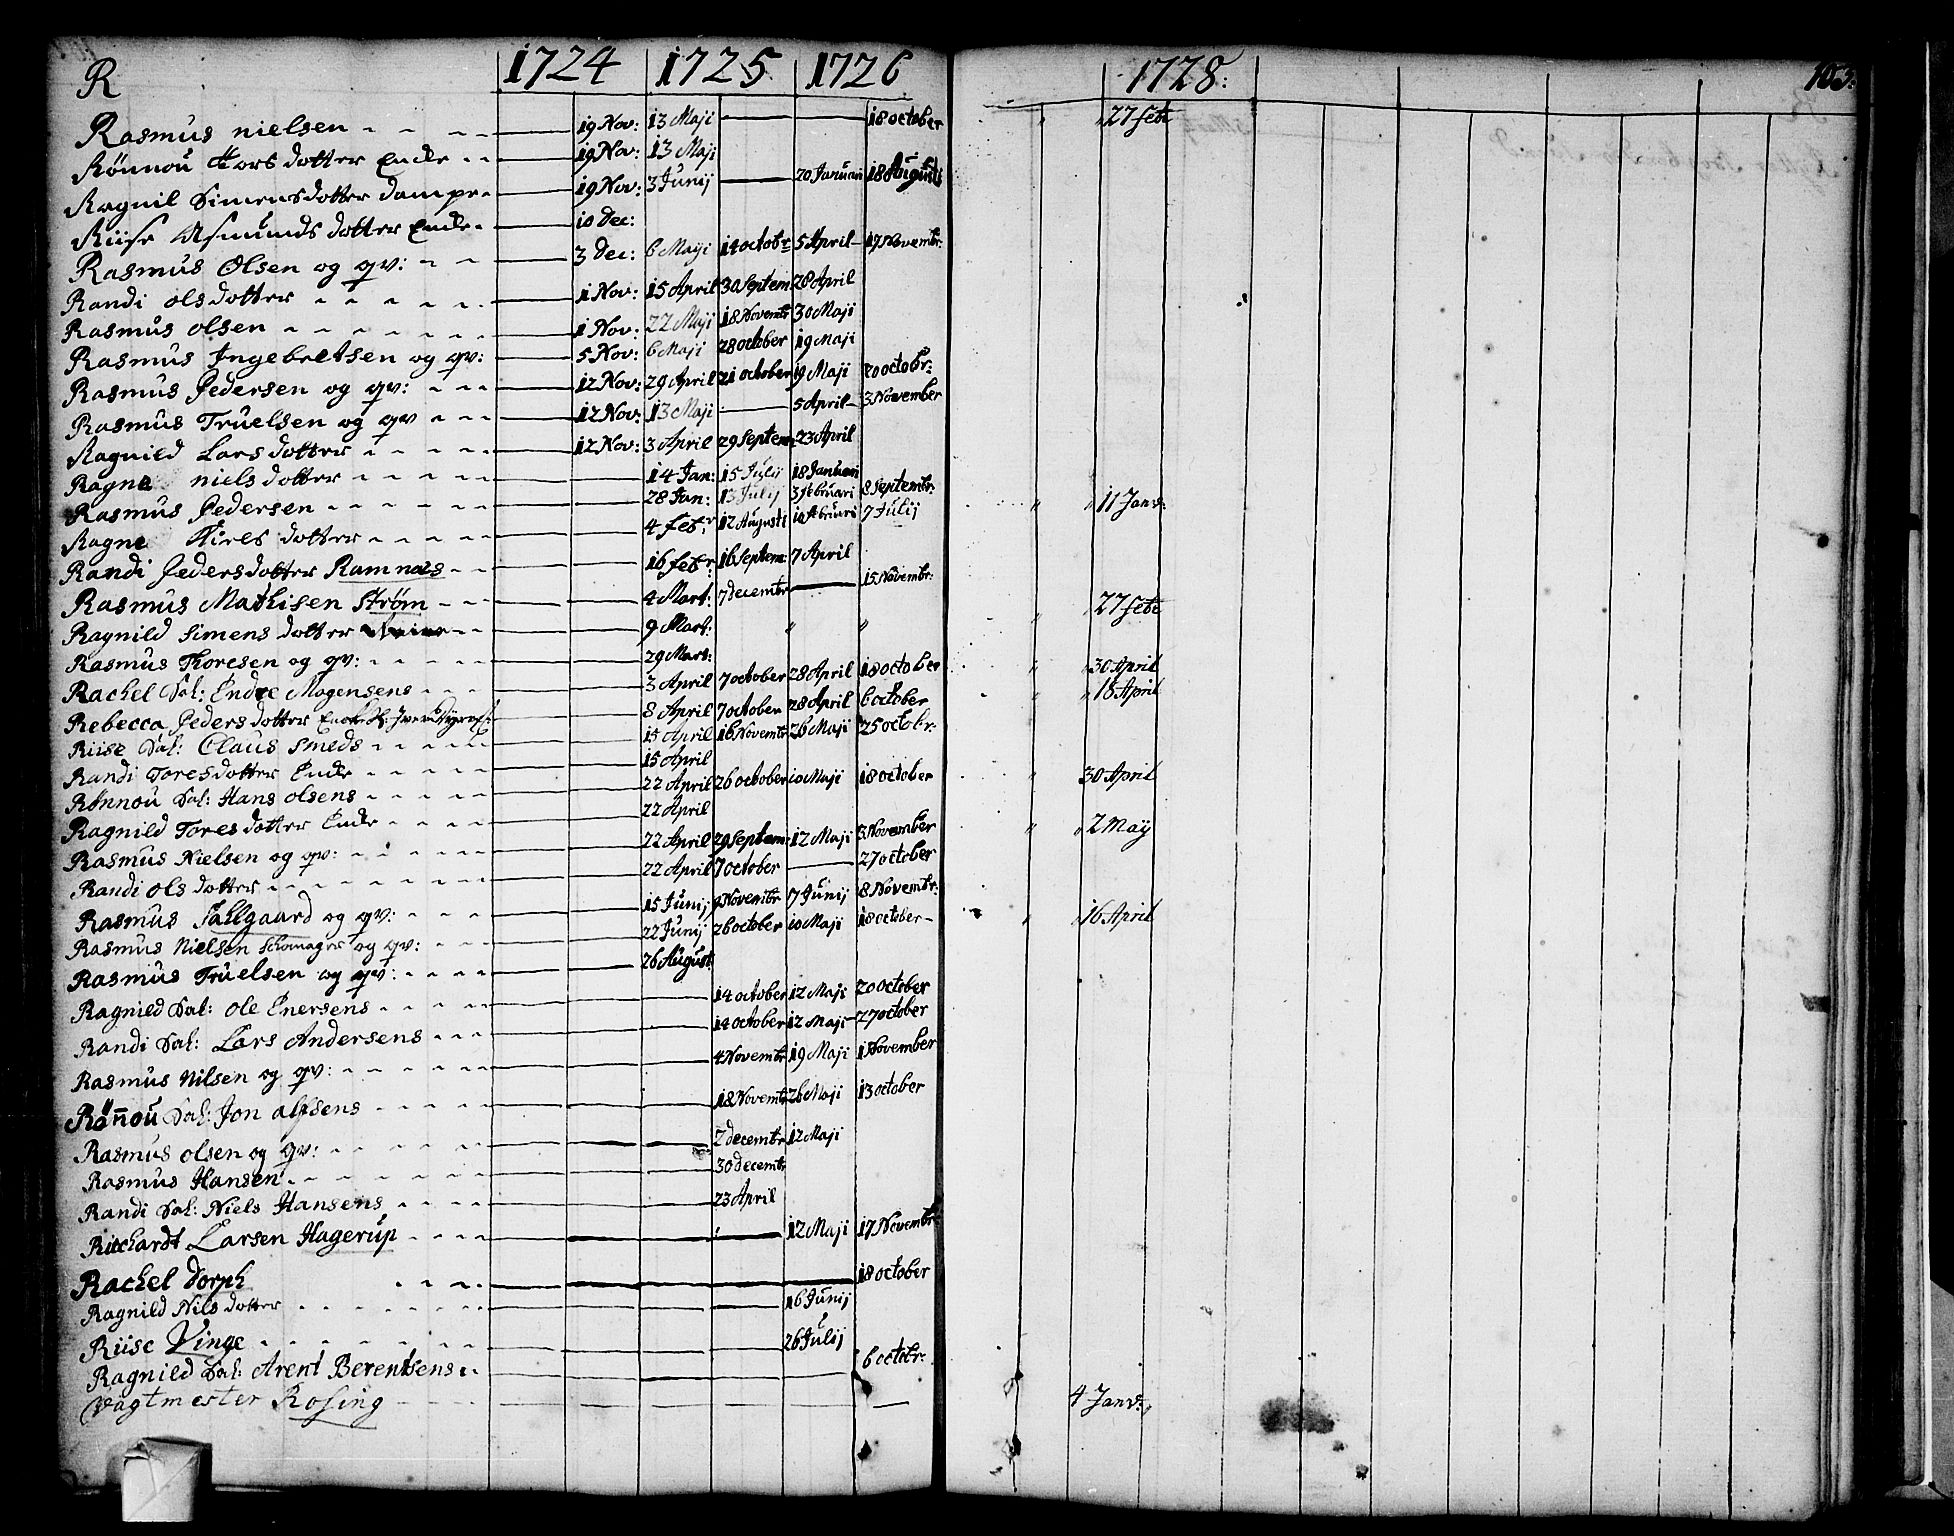 R 1724 1725 1726 1728: 103:
Rasmus nielsen 19 Nov: 13 Maji 18 october 27 febr
Rönnou Tors dotter Encke 19 Nov: 13 Maji
Ragnil Simensdotter 19 Nov: 3 Junij 20 Januari 18 Augusti
Riise Asmunds dotter Encke 10 Dec:
Rasmus Olsen og qv: 3 Dec: 6 Maji 14 octobr 5 April 17 Novembr:
Randi olsdotter 1 Nov: 15 April 30 Septem 28 April
Rasmus olsen 1 Nov: 22 Maji 18 Novembr 30 Maji
Rasmus Ingebretsen og qv: 5 Nov: 6 Maji 28 october 19 Maji
Rasmus Pedersen og qv: 12 Nov: 29 April 21 october 19 Maji 20 octobr:
Rasmus Truelsen og qv 12 Nov: 13 Maji 5 April 3 November
Ragnild Lars dotter 12 Nov: 3 April 29 Septem 23 April
Ragne niels dotter 14 Jan: 15 Julij 18 Januari
Rasmus Pedersen 28 Jan: 13 Julij 3 Februari 8 Septembr: 11 Janv:
Ragne dotter 4 Febr: 12 Augusti 10 Februari 7 Julij
Randi Pedersdotter Ramnæs 16 Febr: 16 Septem: 7 April
Rasmus Mathisen Strøm 4 Mart: 7 decembr 15 Novembr: 27 febr
Ragnild Simens dotter 9 Mart:
Rasmus Thoresen og qv: 29 Mart: 30 April
Rachel Sal: Endre Mogensens 3 April 7 october 28 April 18 october 18 April
Rebecca Peders dotter 8 April 7 october 28 April 6 october
Riise Sal: Claus Smeds 15 April 18 Novembr 26 Maji 25 octobr:
Randi Toresdotter Encke 15 April
Rønnou Sal: Hans olsens 22 April 26 october 10 Maji 18 october 30 April
Ragnild Tores dotter Encke 22 April
Rasmus Nielsen og qv: 22 April 29 Septem: 12 Maji 3 November 2 May
Randi ols dotter 22 April 7 october 27 october
Rasmus Fallgaard og qv: 15 Junij 9 Novembr 7 Junij 8 Novembr:
Rasmus Nielsen Schomager og qv: 22 Junij 26 october 10 Maji 18 october 16 April
Rasmus Truelsen og qv: 26 August
Ragnild Sal: ole Enersens 14 october 12 Maji 20 october
Randi Sal: Lars Andersens 14 october 12 Maji 27 october
Rasmus Nilsen og qv: 4 Novembr 19 Maji 1 November
Rönnou Sal: Jon alfsens 18 Novembr 26 Maji 13 october
Rasmus olsen og qv: 2 decembr 12 Maji
Rasmus Hansen 30 decembr
Randi Sal: Niels Hansens 23 April
Ritchardt Larsen Hagerup 12 Maji 17 Novembr
Rachel Dorph 18 october
Ragnild Nils dotter 16 Junij
Riise Vinge 26 Julij
Ragnild Sal: Arent Berentsens 6 octobr:
Vagtmester Rosing 4 Janv: